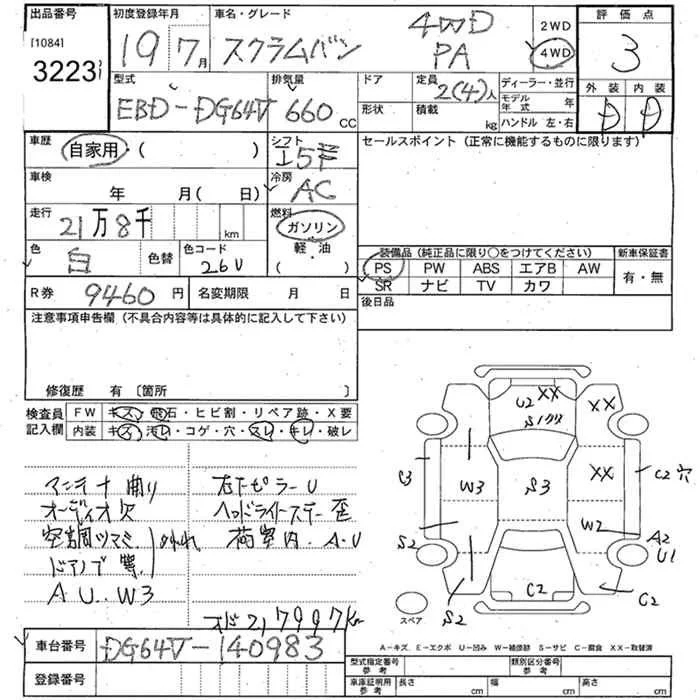 出品番号 初度登録年月 車名・グレード 評価点
[1084] 3223 19 7月 スクラムバン 4WD PA 2WD 4WD 3
型式 排気量 ドア 定員 ディーラー・並行 外装 内装
EBD-DG64V 660 CC 2(4)人 モデル年式 年 D D
形状 積載 kg ハンドル 左・右
車歴 シフト セールスポイント（正常に機能するものに限ります）
自家用・( ) I5F
車検 冷房
年 月( 日) AC
走行 燃料
21万8千 km ガソリン
色 色替 色コード 軽・油
白 26U ( )
装備品（純正品に限り○をつけてください） 新車保証書
PS PW ABS エアB AW 有・無
SR ナビ TV カワ
R券 9460 円 名変期限 月 日 後日品
注意事項申告欄（不具合内容等は具体的に記入して下さい）
修復歴 有 〔箇所 〕
検査員 FW キズ・飛石・ヒビ割・リペア跡・X要
記入欄 内装 キズ・汚レ・コゲ・穴・スレ・キレ・破レ
マンテナ曲り 右下ピラーU
オーディオ欠 ヘッドライトステー歪
空調ツマミ 荷室内 A・U
ドアノブ等
AU、W3
メーター 217997km
U2 XX XX
S1クサ
C3 W3 S3 XX C2穴
S2 W2 A2
U1
S2 C2 C2
スペア
A-キズ、E-エクボ U-凹み W-補修跡 S-サビ C-腐食 XX-取替済
車台番号 DG64V-140983
登録番号
型式指定番号 参考 類別区分番号 参考
車庫証明用 参考 長さ cm 幅 cm 高さ cm